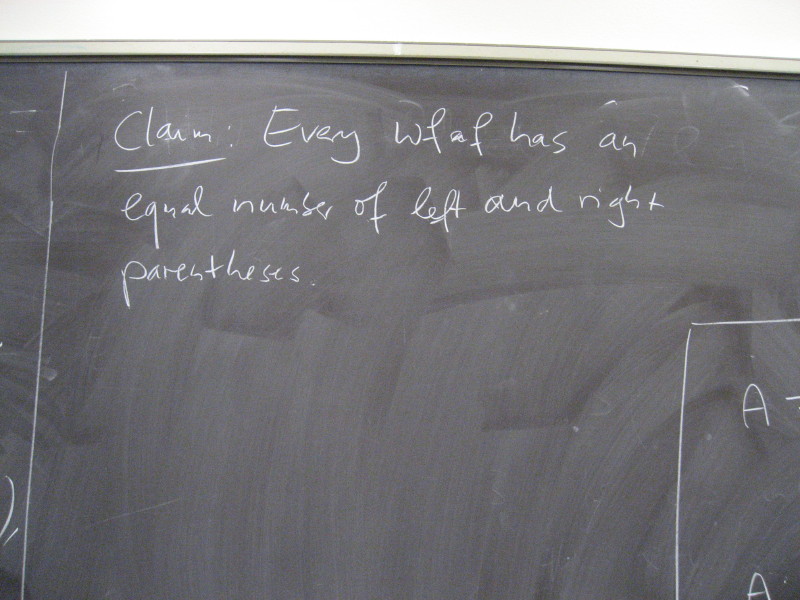 Claim: Every wfof has an
equal number of left and right
parentheses.
),
A
A